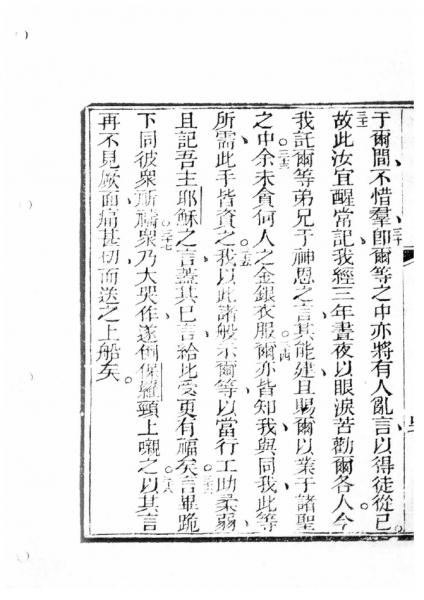 于爾間不惜羣卽爾等之中亦將有人亂言以得徒從己
故此汝宜醒常記我經三年晝夜以眼淚苦勸爾各人今
我託爾等弟兄于神恩之言其能建且賜爾以業于諸聖
之中余未貪何人之金銀衣服爾亦皆知我與同我此等
所需此手皆資之我以此諸般示爾等以當行工助柔弱
且記吾主耶穌之言蓋其已言給比受更有福矣言畢跪
下同彼衆祈禱衆乃大哭作遂伺保羅頸上嚫之以其言
再不見厥面痛甚切而送之上船矣